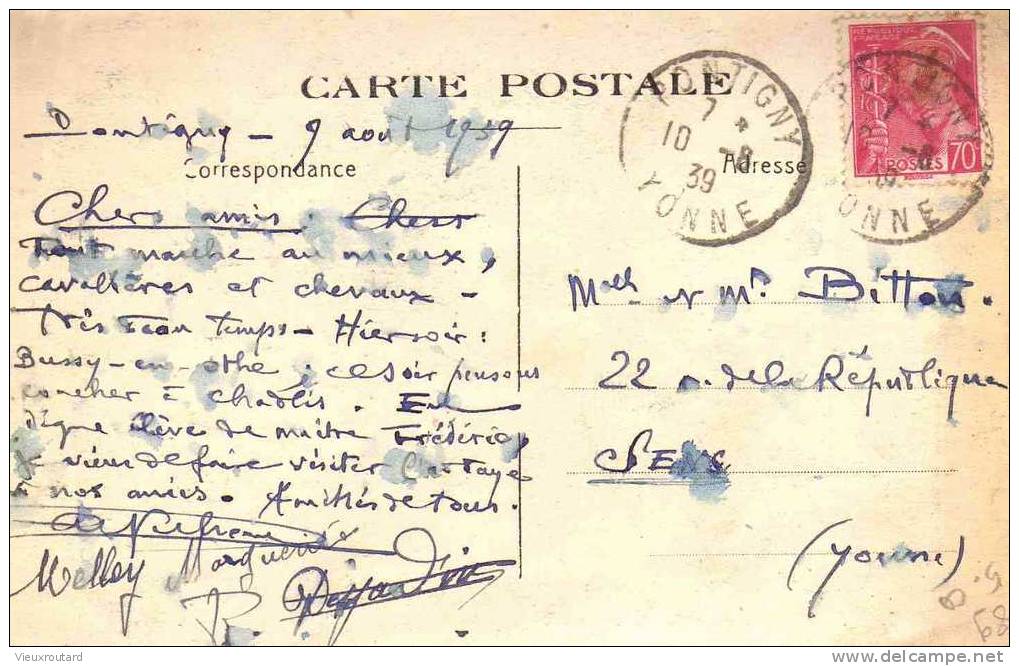 CARTE POSTALE
Pontigny - 9 aout 1939
Correspondance
Chers amis. Chers
Tout marche au mieux,
cavalières et chevaux -
Très beau temps - Hier soir:
Bussy-en-othe; ce soir pensons
coucher à chablis. En
digne élève de maître Frédéric,
je viens de faire visiter l'abbaye
à nos amies. Amitiés de tous.
Marguerite
R.
Adresse
Melle et Mr Bitton.
22 r. de la République
SENS
(Yonne)
PONTIGNY
7 *
10 -8
39
YONNE
REPUBLIQUE FRANÇAISE
POSTES 70c
© Vieuxroutard
www.delcampe.net